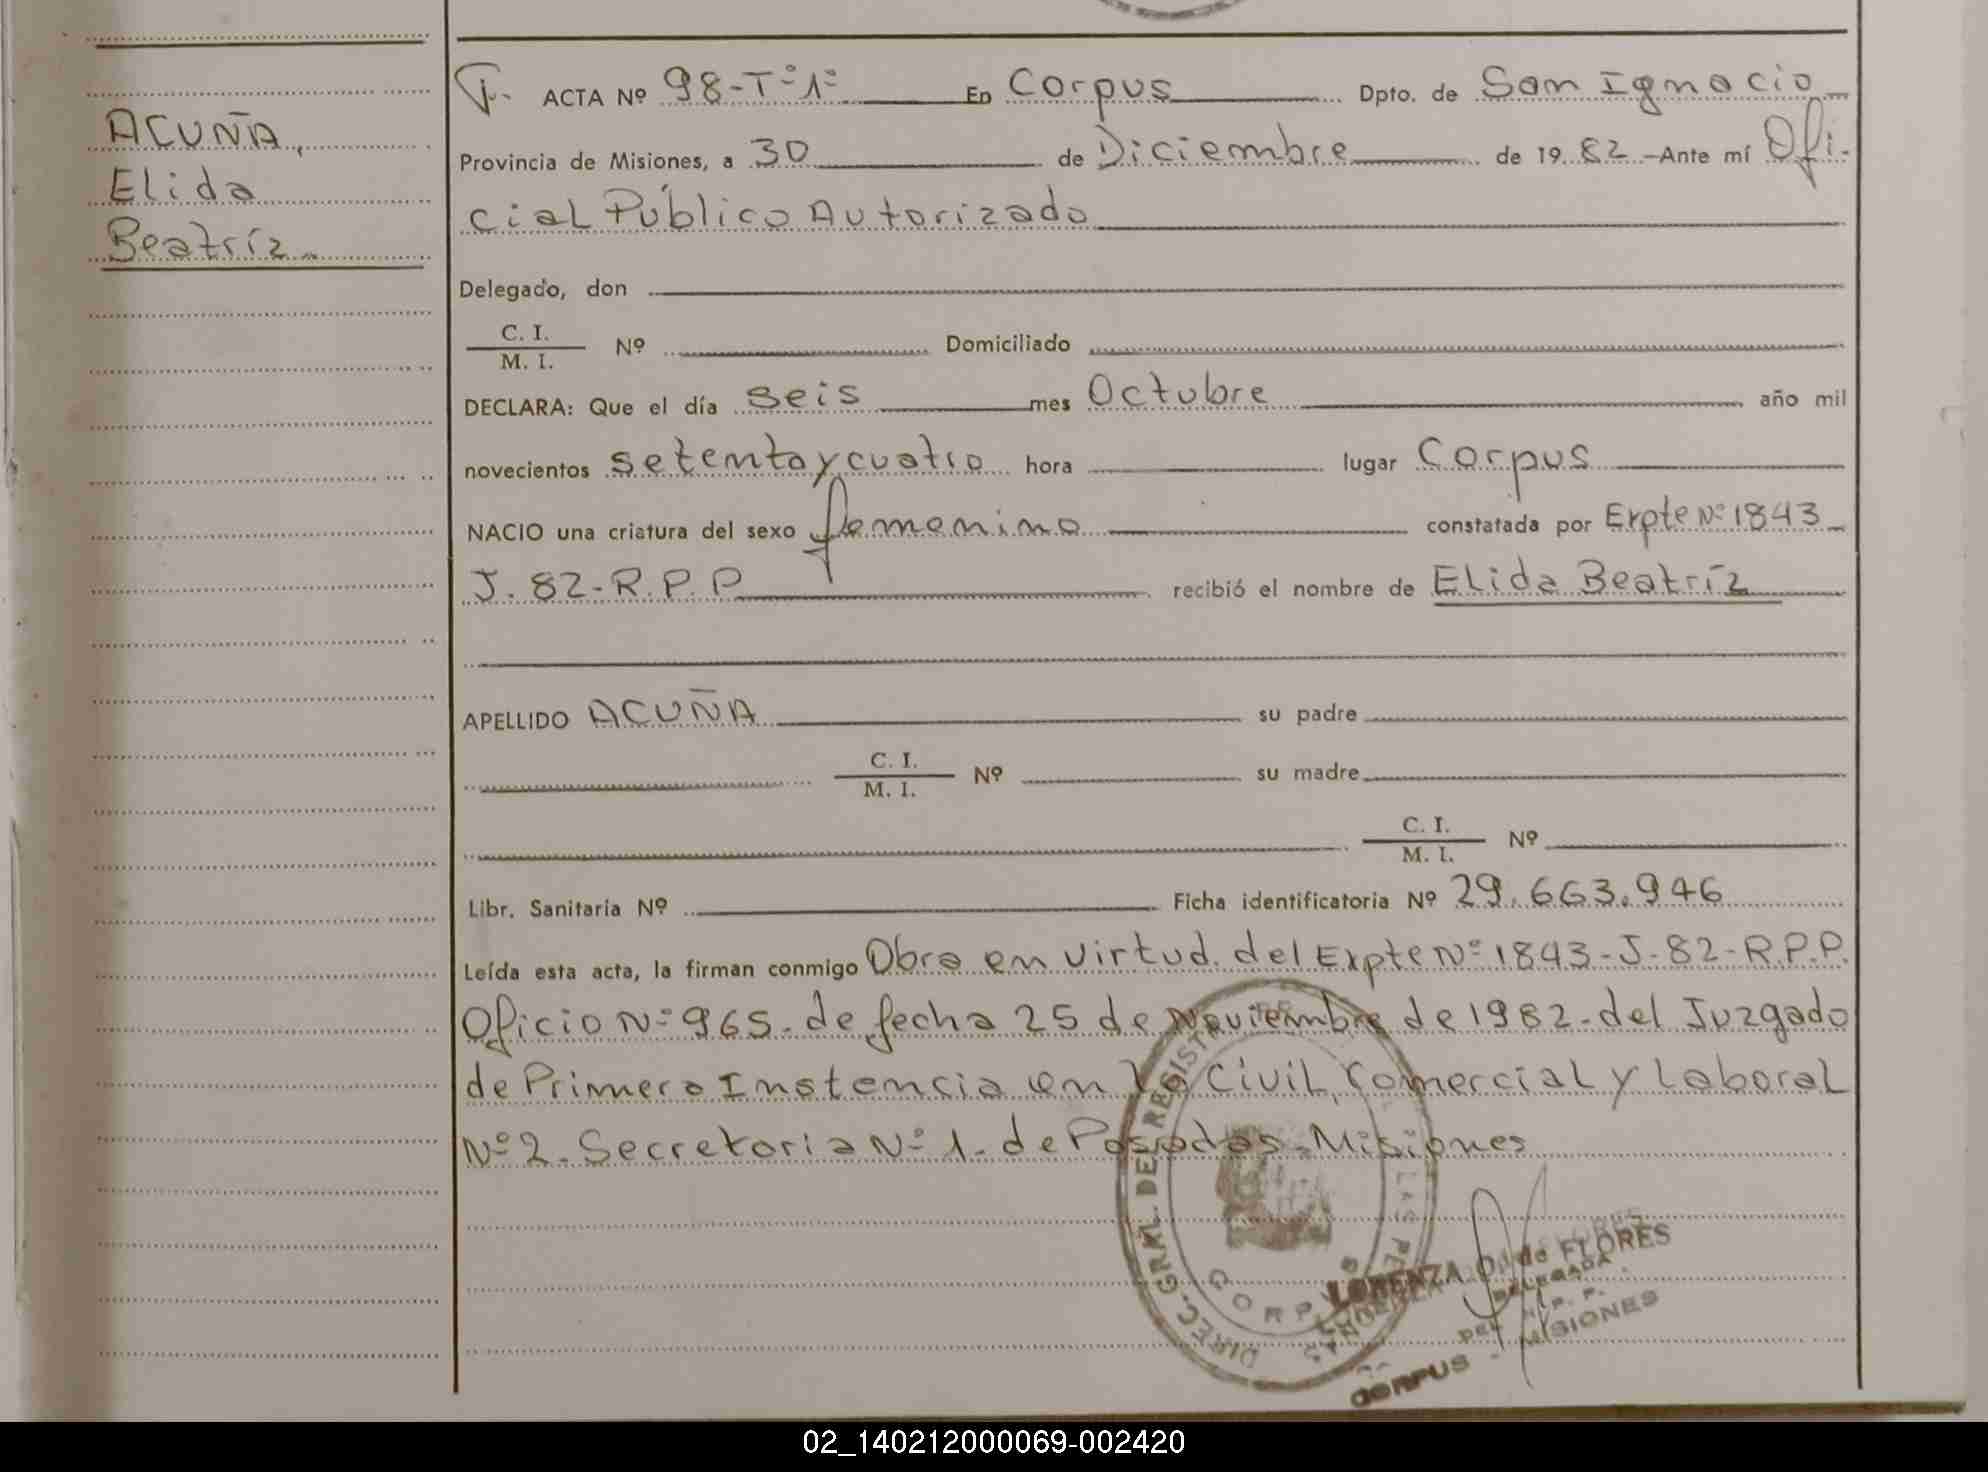 ACUÑA,
Elida
Beatríz
ACTA Nº 98-Tº1º En Corpus Dpto. de San Ignacio
Provincia de Misiones, a 30 de Diciembre de 1982 -Ante mí Ofi-
cial Público Autorizado
Delegado, don
C. I.
M. I. Nº Domiciliado
DECLARA: Que el día seis mes Octubre año mil
novecientos setenta y cuatro hora lugar Corpus
NACIO una criatura del sexo femenino constatada por Expte Nº 1843
J. 82-R.P.P. recibió el nombre de Elida Beatríz
APELLIDO ACUÑA su padre
C. I.
M. I. Nº su madre
C. I.
M. I. Nº
Libr. Sanitaria Nº Ficha identificatoria Nº 29.663.946
Leída esta acta, la firman conmigo Obra en virtud del Expte Nº 1843-J-82-R.P.P.
Oficio Nº 965. de fecha 25 de Noviembre de 1982-del Juzgado
de Primera Instancia en lo Civil, Comercial y Laboral
Nº 2. Secretaria Nº 1. de Posadas-Misiones
DIREC. GRAL. DEL REGISTRO DE LAS
CORPUS
LORENZA O. de FLORES
DELEGADA
DEL R. P. P.
CORPUS - MISIONES
02_140212000069-002420